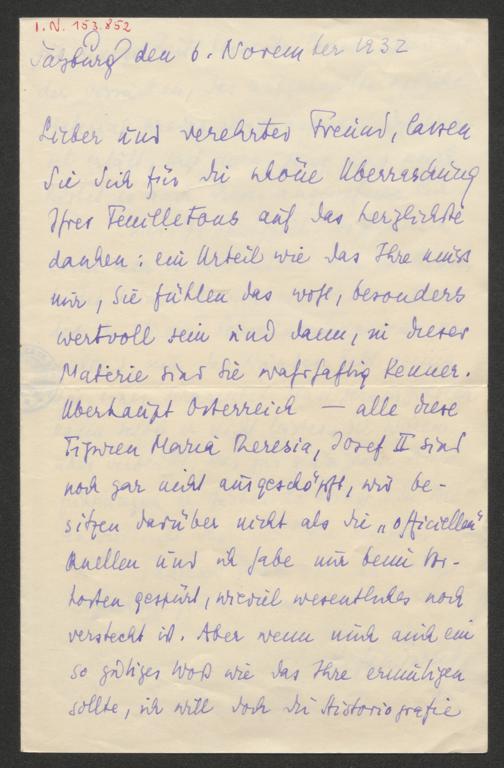 I.N. 153.852
Salzburg den 6. November 1932
Lieber und verehrter Freund, lassen
Sie Sich für die schöne Überraschung
Ihres Feuilletons auf das herzlichste
danken: ein Urteil wie das Ihre muss
mir, Sie fühlen das wohl, besonders
wertvoll sein und dann, in dieser
Materie sind Sie wahrhaftig Kenner.
Überhaupt Österreich — alle diese
Figuren Maria Theresia, Josef II sind
noch gar nicht ausgeschöpft, wir be-
sitzen darüber nicht als die „officiellen"
Quellen und ich habe nur beim
gespürt, wieviel wesentliches noch
versteckt ist. Aber wenn mich auch ein
so gütiges Wort wie das Ihre ermutigen
sollte, ich will doch die Historiografie